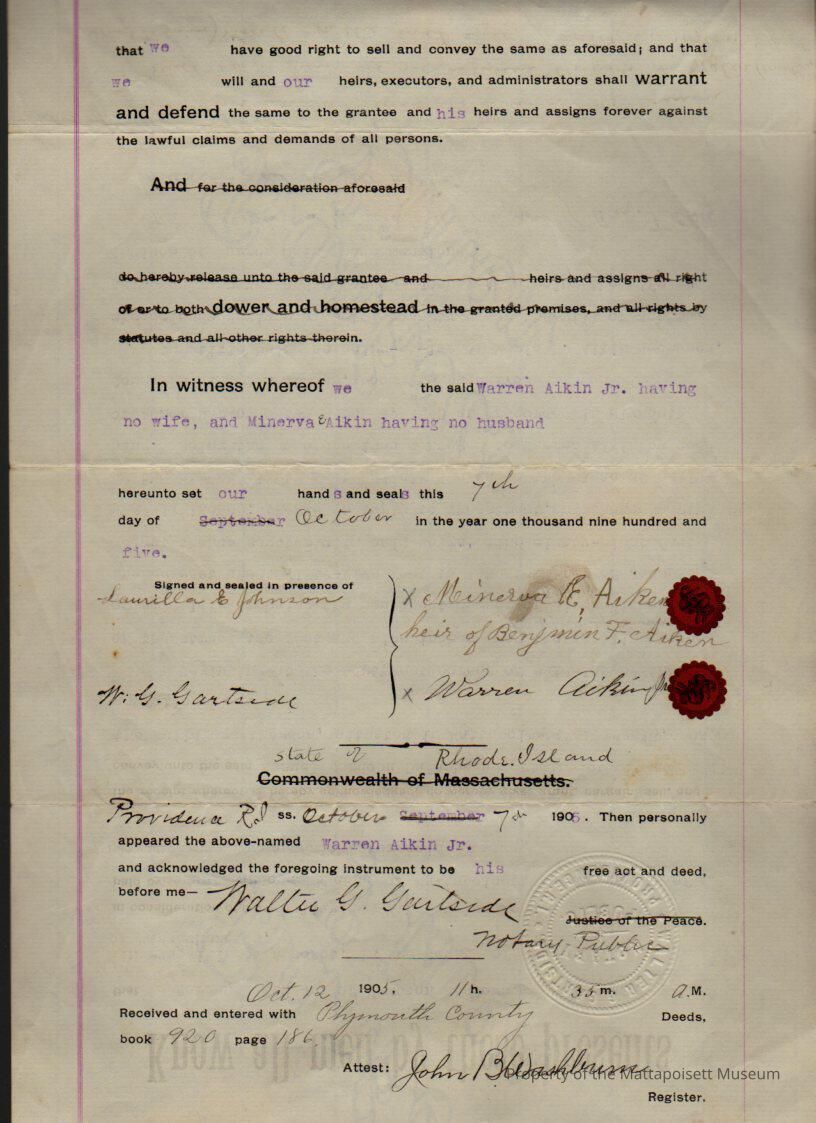 that we have good right to sell and convey the same as aforesaid; and that
we will and our heirs, executors, and administrators shall warrant
and defend the same to the grantee and his heirs and assigns forever against
the lawful claims and demands of all persons.
And for the consideration aforesaid
do hereby release unto the said grantee and heirs and assigns all right
of or to both dower and homestead in the granted premises, and all rights by
statutes and all other rights therein.
In witness whereof we the said Warren Aikin Jr. having
no wife, and Minerva E Aikin having no husband
hereunto set our hands and seals this 7th
day of September October in the year one thousand nine hundred and
five.
Signed and sealed in presence of
Laurilla E Johnson
X Minerva E, Aiken
heir of Benjmin F. Aiken
W. G. Gartside
X Warren Aikin Jr
State of Rhode Island
Commonwealth of Massachusetts.
Providence R.I ss. October September 7th 1905. Then personally
appeared the above-named Warren Aikin Jr.
and acknowledged the foregoing instrument to be his free act and deed,
before me— Walter G. Gartside
Justice of the Peace.
Notary Public
Oct. 12 1905, 11 h. 35 m. A.M.
Received and entered with Plymouth County Deeds,
book 920 page 186
Attest: John B Washburn
Register.
Property of the Mattapoisett Museum